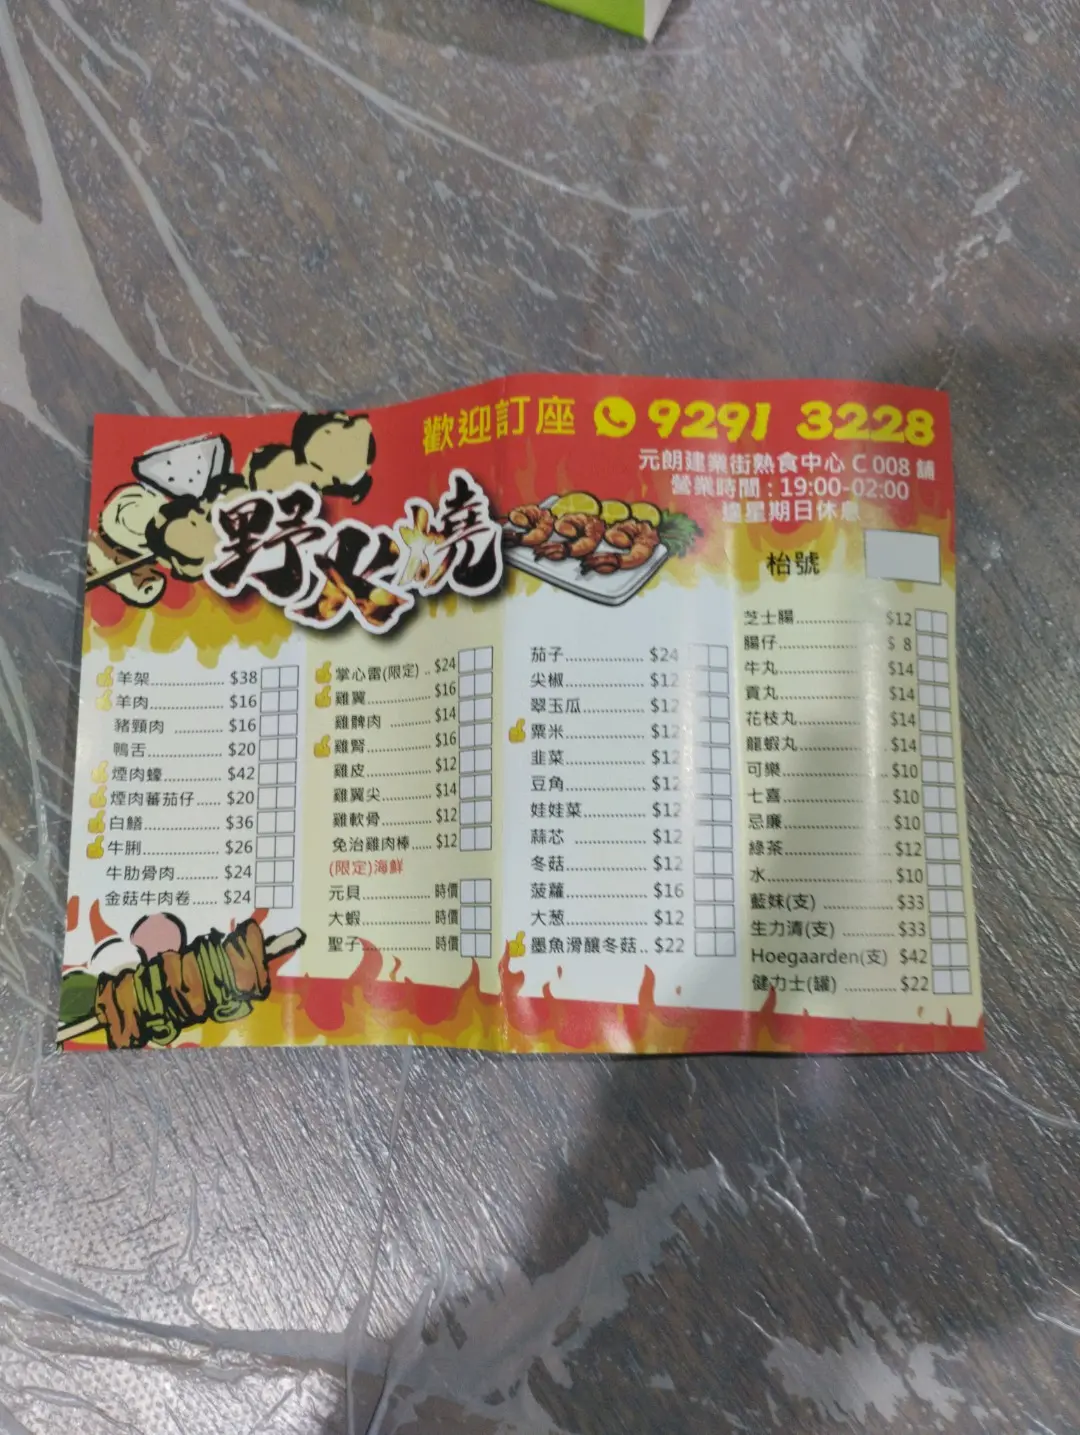 歡迎訂座 9291 3228
元朗建業街熟食中心 C 008 舖
營業時間 : 19:00-02:00
逢星期日休息
野火燒
枱號
羊架 $38
羊肉 $16
豬頸肉 $16
鴨舌 $20
煙肉蠔 $42
煙肉蕃茄仔 $20
白鱔 $36
牛脷 $26
牛肋骨肉 $24
金菇牛肉卷 $24
掌心雷(限定) $24
雞翼 $16
雞髀肉 $14
雞腎 $16
雞皮 $12
雞翼尖 $14
雞軟骨 $12
免治雞肉棒 $12
(限定)海鮮
元貝 時價
大蝦 時價
聖子 時價
茄子 $24
尖椒 $12
翠玉瓜 $12
粟米 $12
韭菜 $12
豆角 $12
娃娃菜 $12
蒜芯 $12
冬菇 $12
菠蘿 $16
大葱 $12
墨魚滑釀冬菇 $22
芝士腸 $12
腸仔 $ 8
牛丸 $14
貢丸 $14
花枝丸 $14
龍蝦丸 $14
可樂 $10
七喜 $10
忌廉 $10
綠茶 $12
水 $10
藍妹(支) $33
生力清(支) $33
Hoegaarden(支) $42
健力士(罐) $22